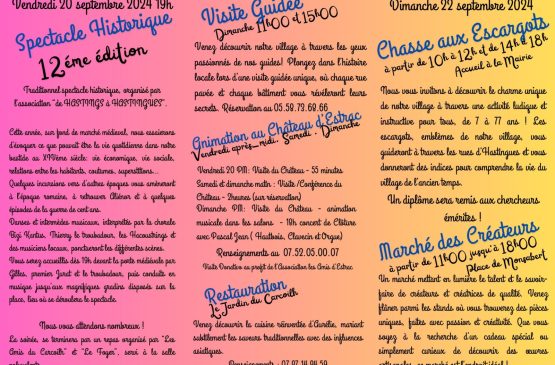 Vendredi 20 septembre 2024 19h
Spectacle Historique
12éme édition
Traditionnel spectacle historique, organisé par
l'association "de HASTINGS à HASTINGUES".
Cette année, sur fond de marché médieval, nous essaierons
d'évoquer ce que pouvait être la vie quotidienne dans notre
bastide au XIVème siècle: vie économique, vie sociale,
relations entre les habitants, coutumes, superstitions...
Quelques incursions vers d'autres époques vous amèneront
à l'époque romaine, à retrouver Aliénor et à quelques
épisodes de la guerre de cent ans.
Danses et intermèdes musicaux, interprétés par la chorale
Bizi Kantuz, Thierry le troubadour, les
et des musiciens locaux, ponctueront les différentes scènes.
Vous serez accueillis dès 19h devant la porte médiévale par
Gilles, premier Jurat et le troubadour, puis conduits en
musique jusqu'aux magnifiques gradins disposés sur la
place, lieu où se déroulera le spectacle.
Nous vous attendons nombreux !
La soirée, se terminera par un repas organisé par "Les
Amis du Carcoilh" et "Le Foyer", servi à la salle
Visite Guidée
Dimanche 11h00 et 15h00
Venez découvrir notre village à travers les yeux
passionnés de nos guides! Plongez dans l'histoire
locale lors d'une visite guidée unique, où chaque rue
pavée et chaque bâtiment vous révéleront leurs
secrets. Réservation au 05.59.73.68.66
Animation au Château d'Estrac
Vendredi après_midi. Samedi . Dimanche
Vendredi 20 PM: Visite du Château - 55 minutes
Samedi et dimanche matin : Visite /Conférence du
Château - 2heures (sur réservation)
Dimanche PM: Visite du Château - animation
musicale dans les salons - 16h concert de Clôture
avec Pascal Jean ( Hautbois, Clavecin et Orgue)
Renseignements au 07.52.05.00.07
Visite Donative au profit de l'Association les Amis d'Estrac
Restauration
Le Jardin du Carcoilh
Venez découvrir la cuisine réinventée d'Aurélie, mariant
subtilement les saveurs traditionnelles avec des influences
asiatiques.
Dimanche 22 septembre 2024
Chasse aux Escargots
à partir de 10h à 12h et de 14h à 18h
Accueil à la Mairie
Nous vous invitons à découvrir le charme unique
de notre village à travers une activité ludique et
instructive pour tous, de 7 à 77 ans ! Les
escargots, emblèmes de notre village, vous
guideront à travers les rues d'Hastingues et vous
donneront des indices pour comprendre la vie du
village de l'ancien temps.
Un diplôme sera remis aux chercheurs
émérites !
Marché des Créateurs
à partir de 11h00 jusqu'à 18h00
Place de Monjabert
Un marché mettant en lumière le talent et le savoir-
faire de créateurs et créatrices de qualité. Venez
flâner parmi les stands où vous trouverez des pièces
uniques, faites avec passion et créativité. Que vous
soyez à la recherche d'un cadeau spécial ou
simplement curieux de découvrir des œuvres